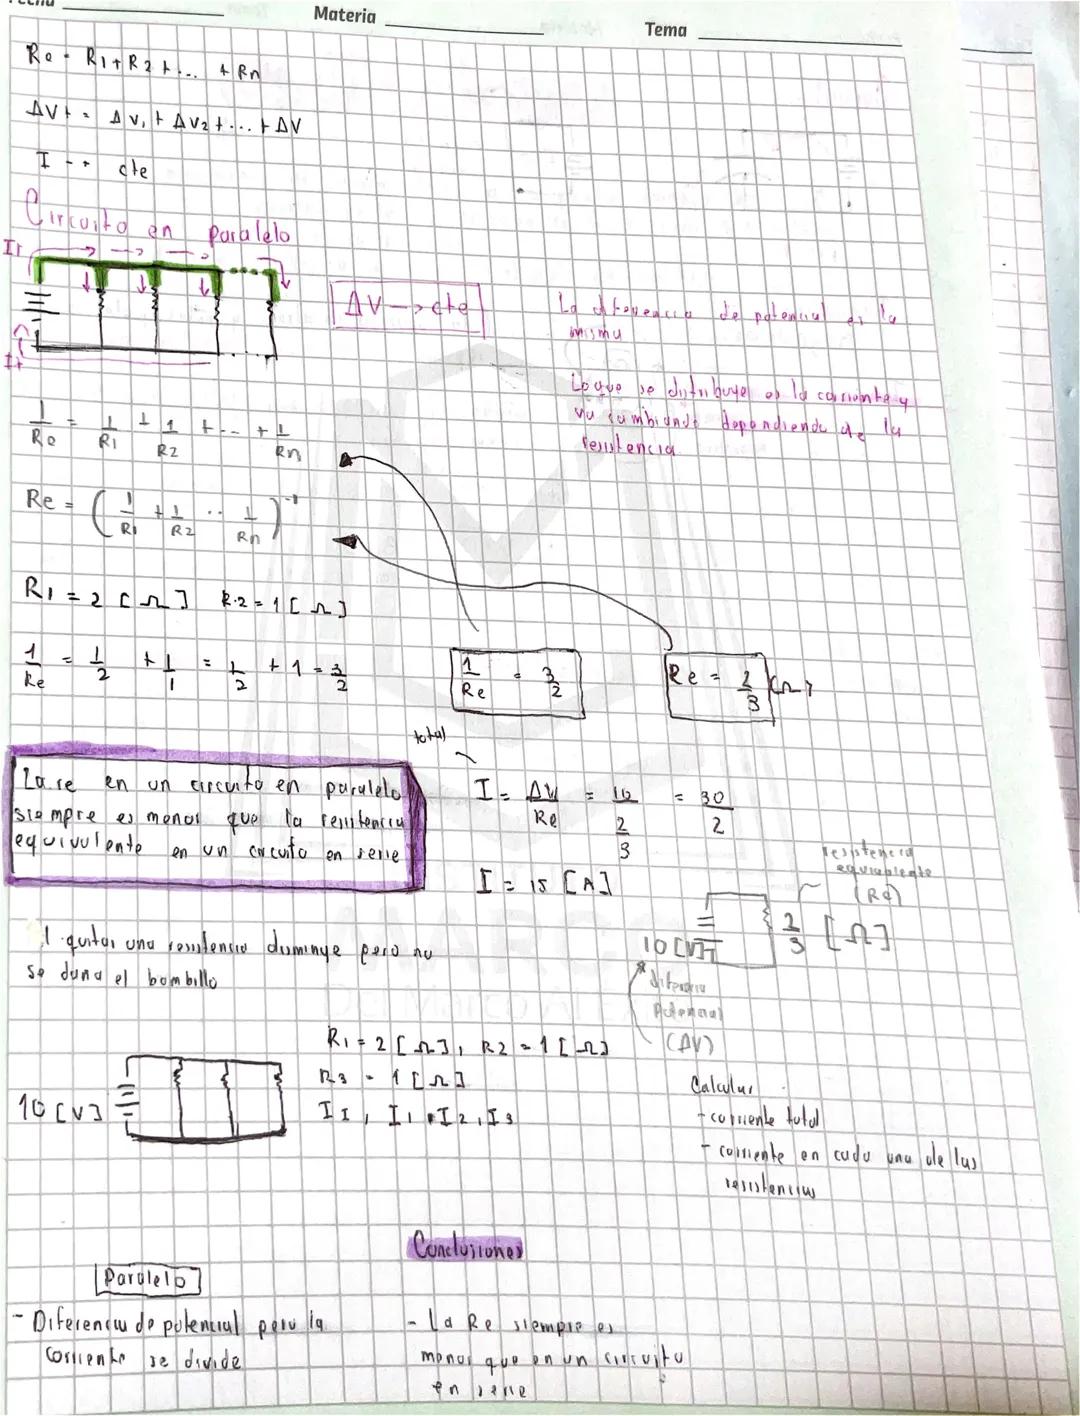 Fecha Materia Tema
Re = R1 + R2 + ... + Rn
ΔVt = ΔV1 + ΔV2 + ... + ΔV
I --> cte
Circuito en paralelo
It
It
ΔV --> cte
La diferencia de potencial es la
misma
Lo que se distribuye es la corriente y
va cambiando dependiendo de la
resistencia
1/Re = 1/R1 + 1/R2 + ... + 1/Rn
Re = (1/R1 + 1/R2 ... 1/Rn)^-1
R1 = 2 [Ω] R2 = 1 [Ω]
1/Re = 1/2 + 1/1 = 1/2 + 1 = 3/2
1/Re = 3/2
Re = 2/3 [Ω]
total
La re en un circuito en paralelo
siempre es menor que la resistencia
equivalente en un circuito en serie
I = ΔV/Re = 10/(2/3) = 30/2
I = 15 [A]
resistencia
equivalente
(Re)
10 [V]
2/3 [Ω]
diferencia
potencial
(ΔV)
quitar una resistencia disminuye pero no
se daña el bombillo
R1 = 2 [Ω], R2 = 1 [Ω]
R3 = 1 [Ω]
II, I1, I2, I3
10 [V]
Calcular
- corriente total
- corriente en cada una de las
resistencias
Conclusiones
Paralelo
- Diferencia de potencial pero la
corriente se divide
- La Re siempre es
menor que en un circuito
en serie